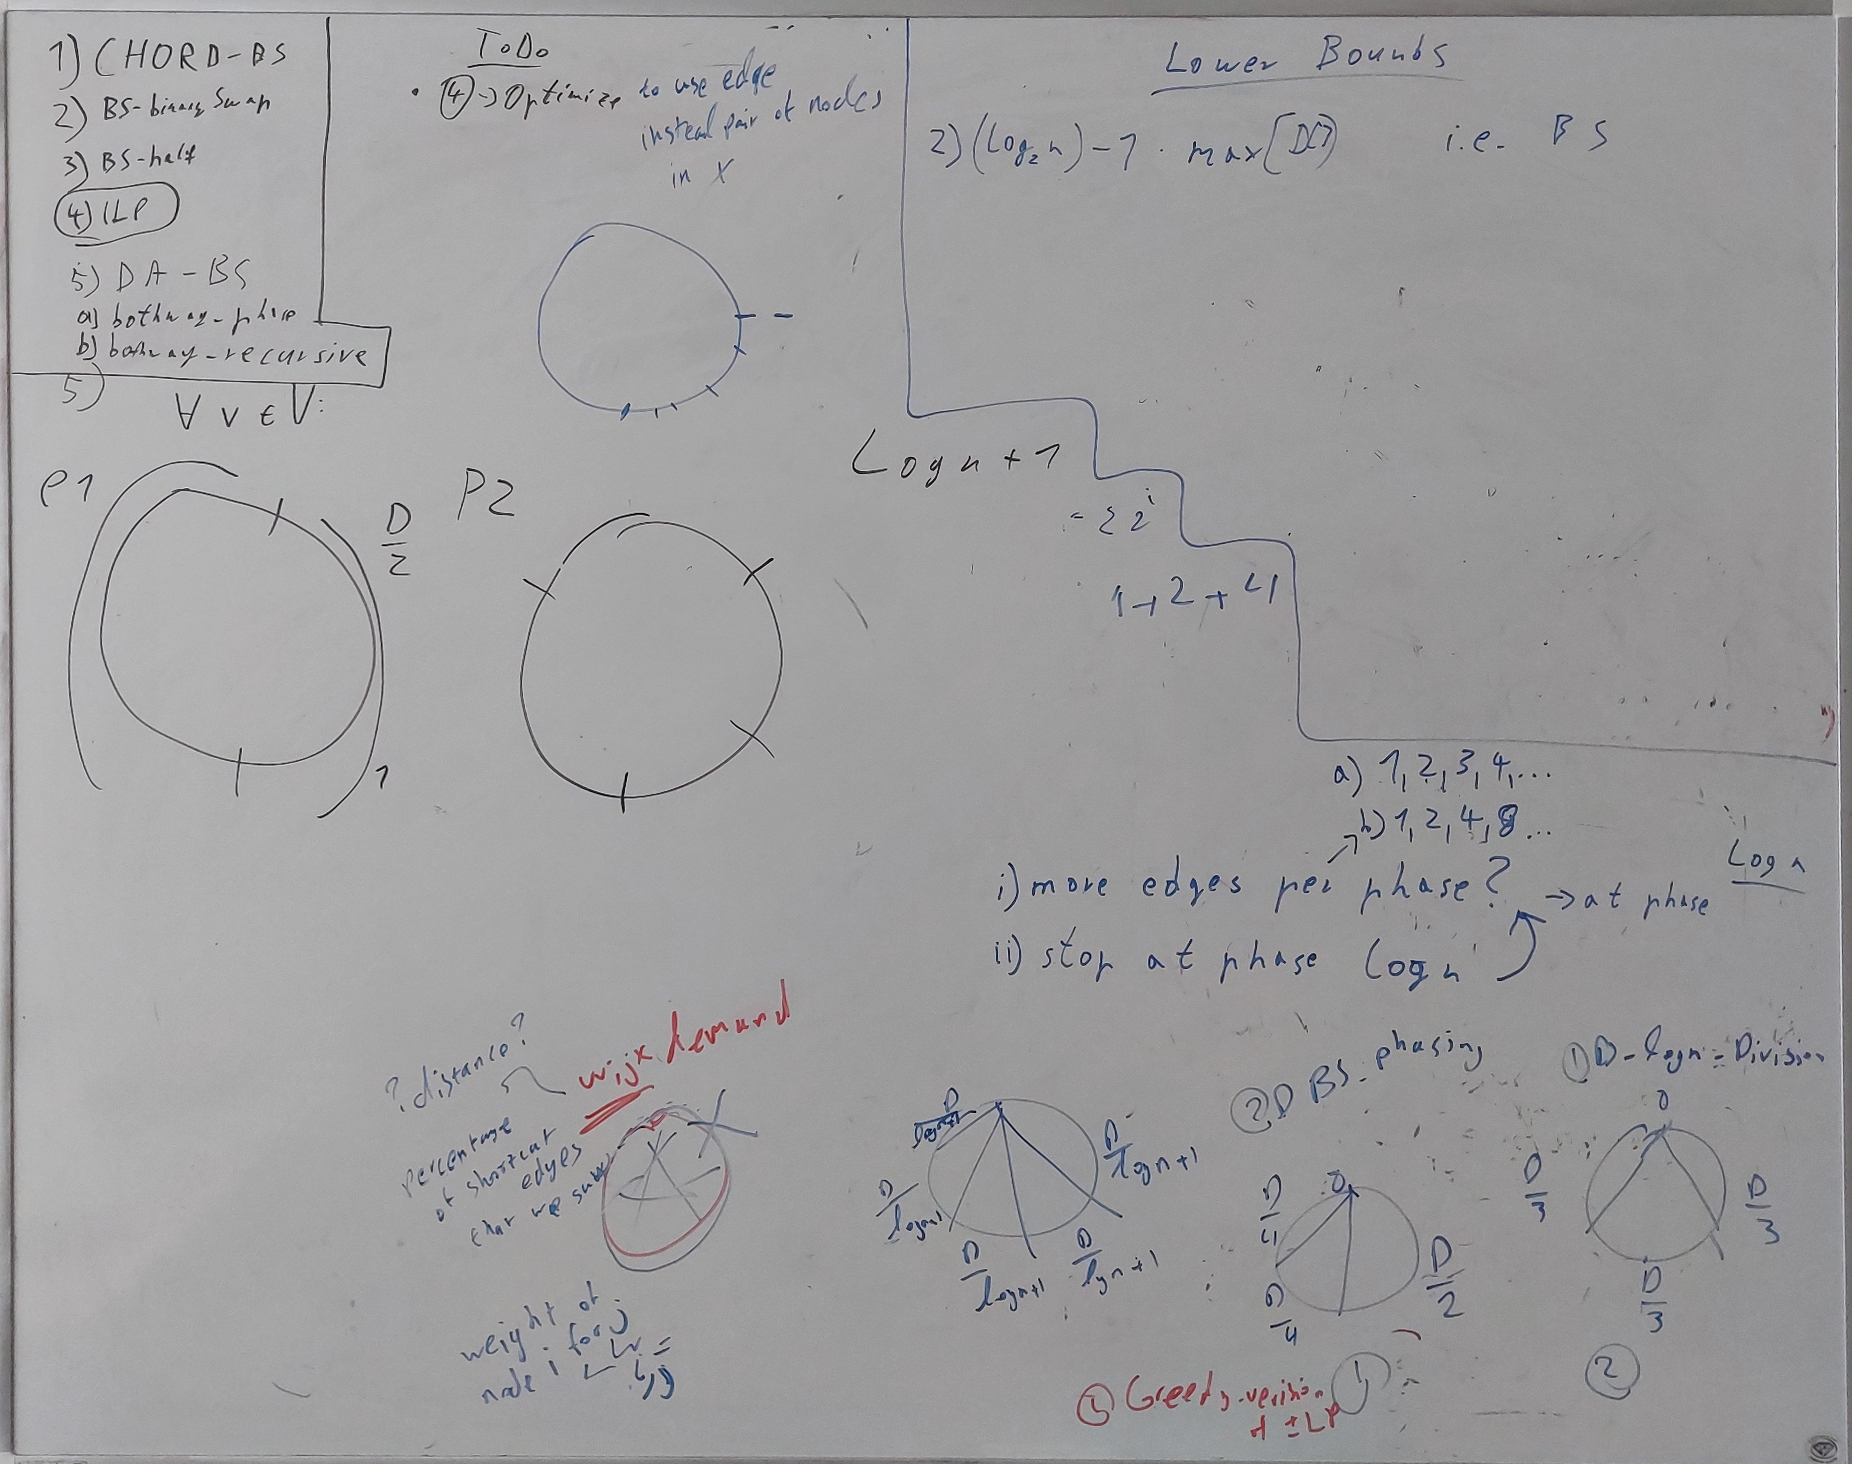 1) CHORD-BS
2) BS-binary Swap
3) BS-half
4) ILP
5) DA-BS
a) bothway-phase
b) bothway-recursive
5)
∀ v ∈ V:
ToDo
• 4 -> Optimize to use edge
instead pair of nodes
in X
Lower Bounds
2) (Log₂ n) - 1 · max(D[])
i.e. BS
P1
D/2
1
P2
Log n + 1
= Σ 2^i
1 + 2 + 4
a) 1, 2, 3, 4, ...
b) 1, 2, 4, 8 ...
i) more edges per phase? -> at phase Log n
ii) stop at phase Log n
? distance?
wij x demand
percentage
of shortcut
edges
that we
weight of
node i for j
D/log n+1
D/log n+1
D/log n+1
D/log n+1
D/log n+1
2 D BS-phasing
0
D/4
D/4
D/2
1 D-logn-Division
0
D/3
D/3
D/3
1
2
3 Greedy-version
of ILP